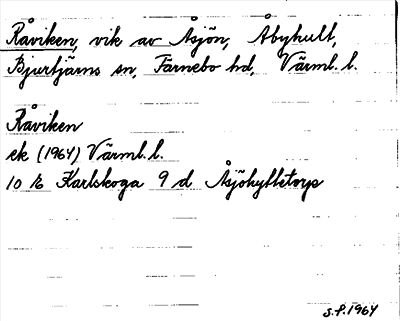 Råviken, vik av Åsjön, Åbyhult,
Bjurtjärns sn, Färnebo hd, Värml. l.
Råviken
ek (1964) Värml. l.
10 Karlskoga 9 d Åsjöhyttetorp
S.P. 1964